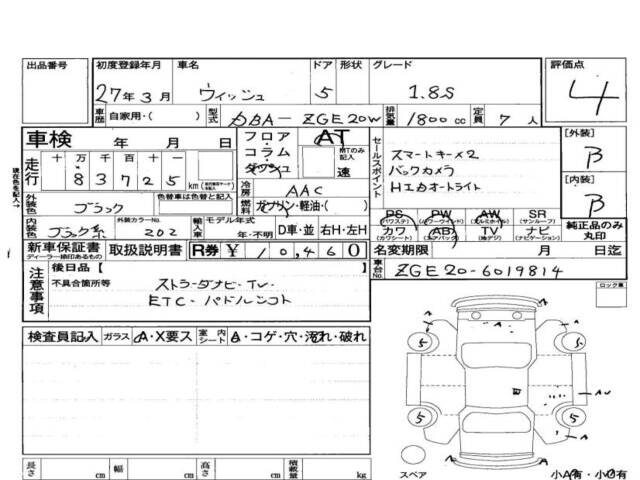 出品番号 初度登録年月 車名 ドア 形状 グレード 評価点
27年3月 ウィッシュ 5 1.8S 4
車歴 自家用・( ) 型式 DBA-ZGE20W 排気量 1800cc 定員 7人
車検 年 月 日 フロア AT
コラム MTのみ記入
ダッシュ 速
走行 十 万 千 百 十
83725 km
冷房 AAC
外装色 ブラック 色替車は色替と記入 燃料 ガソリン・軽油・( )
内装色 ブラック系 外装カラーNo. 202 輸入車 モデル年式 年・不明 D車・並 右H・左H
セールスポイント スマートキー×2
バックカメラ
HIDオートライト
[外装] B
[内装] B
PS (パワステ) PW (パワーウインド) AW (アルミホイル) SR (サンルーフ)
カワ (カワシート) AB (エアバック) TV (地デジ) ナビ (ナビゲーション)
純正品のみ丸印
新車保証書 ディーラー捺印あるもの 取扱説明書 R券 ¥10,460 名変期限 月 日迄
車台No. ZGE20-6019814
注意事項 後日品【
不具合箇所等 ストラーダナビ・TV・
ETC・パドルシフト
現在色を記入→
ロック無
検査員記入 ガラス A・X要ス 室内シート A・コゲ・穴・汚れ・破れ
長さ cm 幅 cm 高さ cm 積載量 kg
5 5
5 5
スペア 小A有・小U有